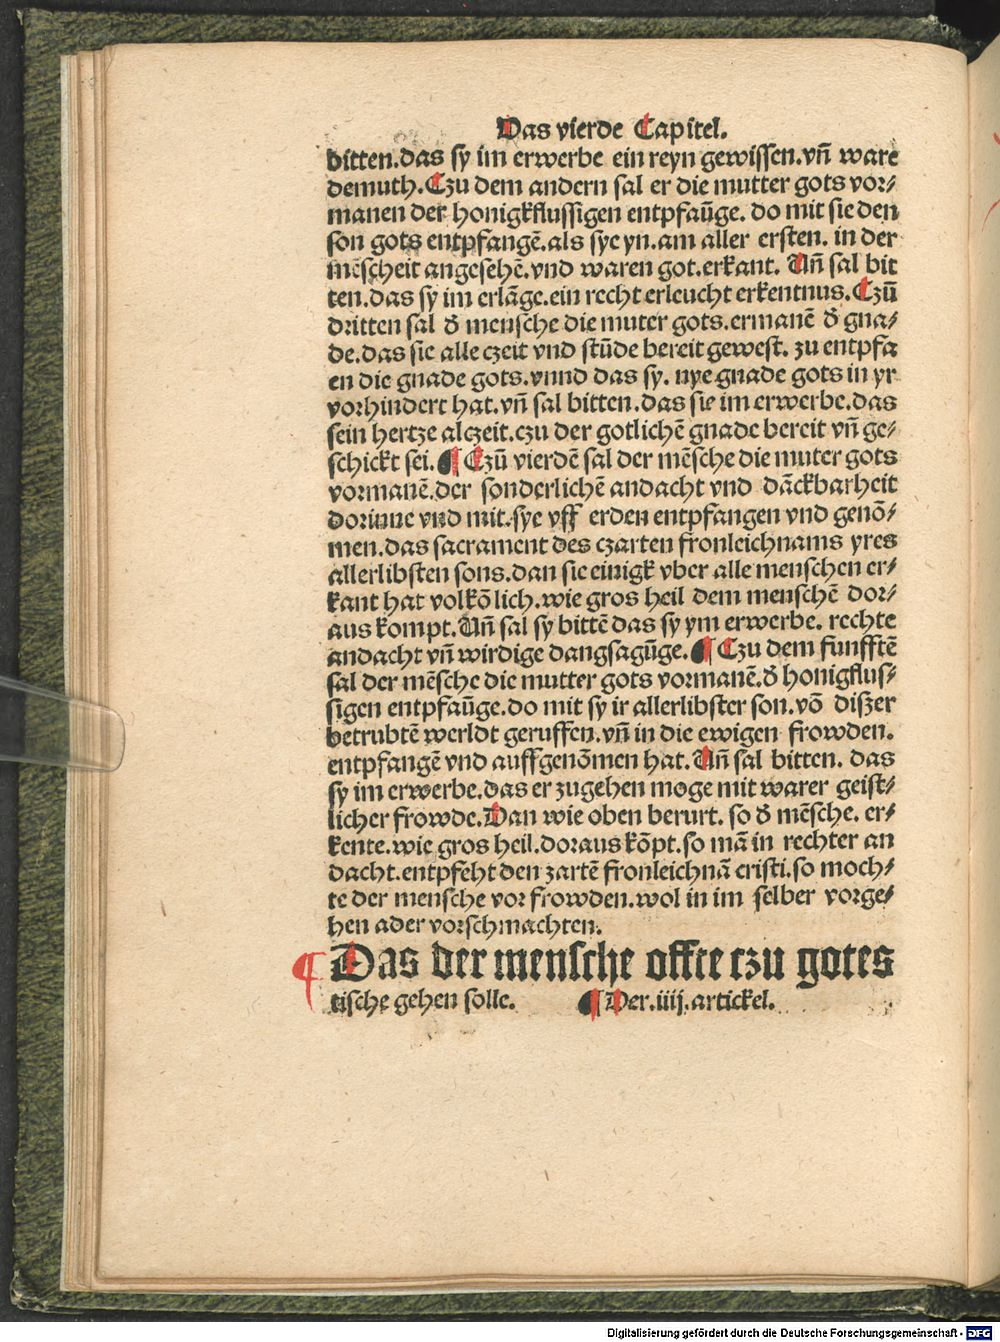 Das vierde Capitel.
bitten.das sy im erwerbe ein reyn gewissen.vn̄ ware
demuth.Czu dem andern sal er die mutter gots vor⸗
manen der honigkflussigen entpfaūge. do mit sie den
son gots entpfangē.als sye yn.am aller ersten. in der
mēscheit angesehē.vnd waren got.erkant. Vn̄ sal bit
ten.das sy im erlāge.ein recht erleucht erkentnus.Czū
dritten sal d̄ mensche die muter gots.ermanē d̄ gna⸗
de.das sie alle czeit vnd stūde bereit gewest. zu entpfa
en die gnade gots.vnnd das sy. nye gnade gots in yr
vorhindert hat.vn̄ sal bitten.das sie im erwerbe.das
sein hertze alczeit.czu der gotlichē gnade bereit vn̄ ge⸗
schickt sei.¶ Czū vierdē sal der mēsche die muter gots
vormanē.der sonderlichē andacht vnd dāckbarheit
dorinne vnd mit.sye vff erden entpfangen vnd genō⸗
men.das sacrament des czarten fronleichnams yres
allerlibsten sons.dan sie einigk vber alle menschen er⸗
kant hat volkōlich.wie gros heil dem menschē dor⸗
aus kompt.Vn̄ sal sy bittē das sy ym erwerbe. rechte
andacht vn̄ wirdige dangsagūge.¶ Czu dem funfftē
sal der mēsche die mutter gots vormanē.d̄ honigflus⸗
sigen entpfaūge.do mit sy ir allerlibster son.vō diszer
betrubtē werldt geruffen.vn̄ in die ewigen frowden.
entpfangē vnd auffgenōmen hat.Vn̄ sal bitten. das
sy im erwerbe.das er zugehen moge mit warer geist⸗
licher frowde.Dan wie oben berurt. so d̄ mēsche. er⸗
kente.wie gros heil.doraus kōpt.so mā in rechter an
dacht.entpfeht den zartē fronleichnā cristi.so moch⸗
te der mensche vor frowden.wol in im selber vorge⸗
hen ader vorschmachten.
¶ Das der mensche offte czu gotes
tische gehen solle. ¶ Der.iiij.artickel.
Digitalisierung gefördert durch die Deutsche Forschungsgemeinschaft - DFG